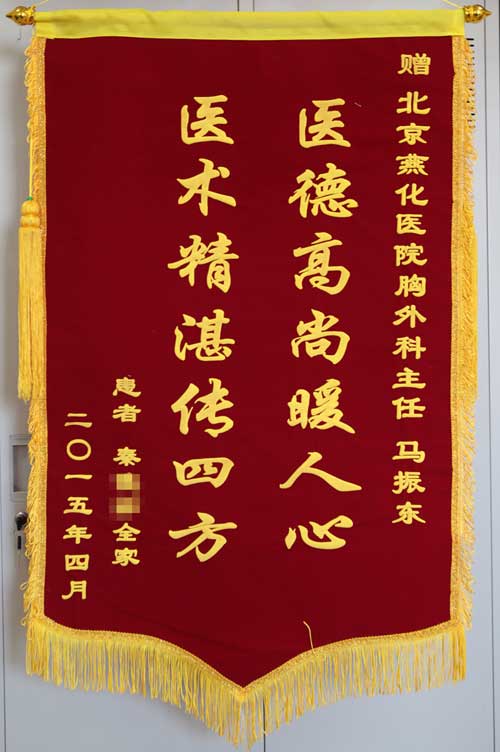 赠 北京燕化医院胸外科主任 马振东
医德高尚暖人心
医术精湛传四方
患者 秦 全家
二〇一五年四月